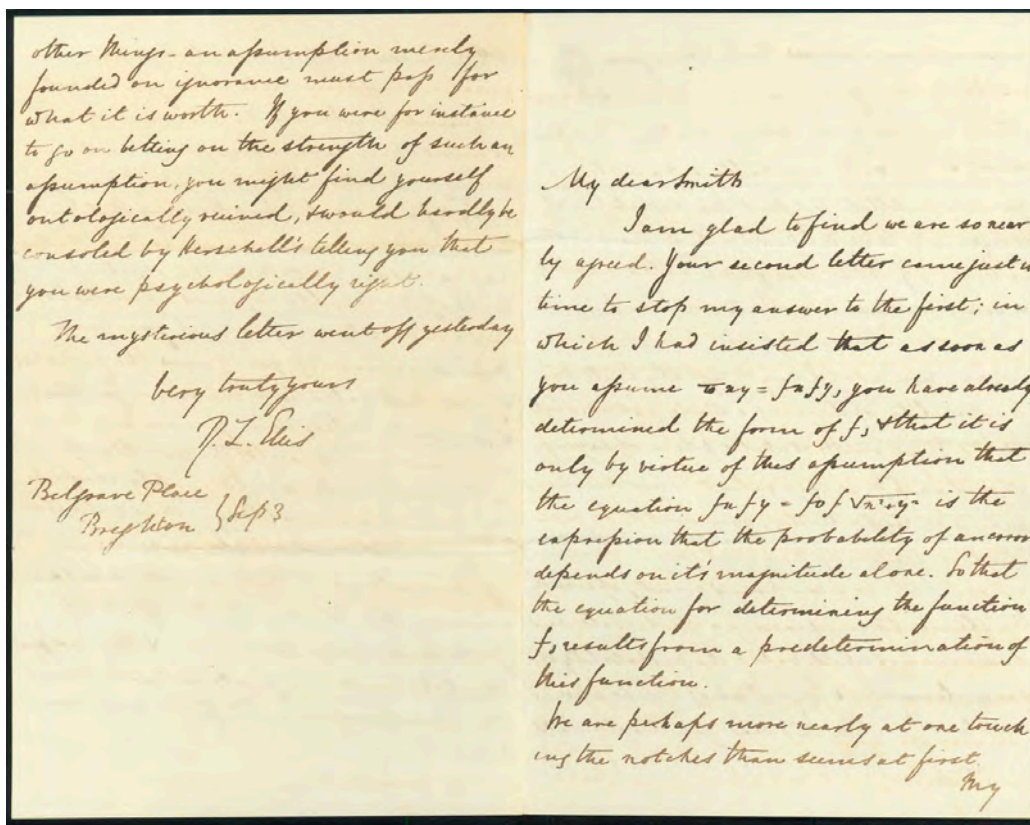 other things - an assumption merely
founded on ignorance must pass for
what it is worth. If you were for instance
to go on betting on the strength of such an
assumption, you might find yourself
ontologically ruined, & would hardly be
consoled by Herschell's telling you that
you were psychologically right.
The mysterious letter went off yesterday
Very truly yours
R. L. Ellis
Belgrave Place
Brighton } Sep 3
My dear Smith
I am glad to find we are so near
ly agreed. Your second letter came just in
time to stop my answer to the first; in
which I had insisted that as soon as
you assume ϖxy = fxfy, you have already
determined the form of f, & that it is
only by virtue of this assumption that
the equation fxfy = fof√x²+y² is the
expression that the probability of an error
depends on it's magnitude alone. So that
the equation for determining the function
f, results from a predetermination of
this function.
We are perhaps more nearly at one touch
ing the notches than seems at first.
My